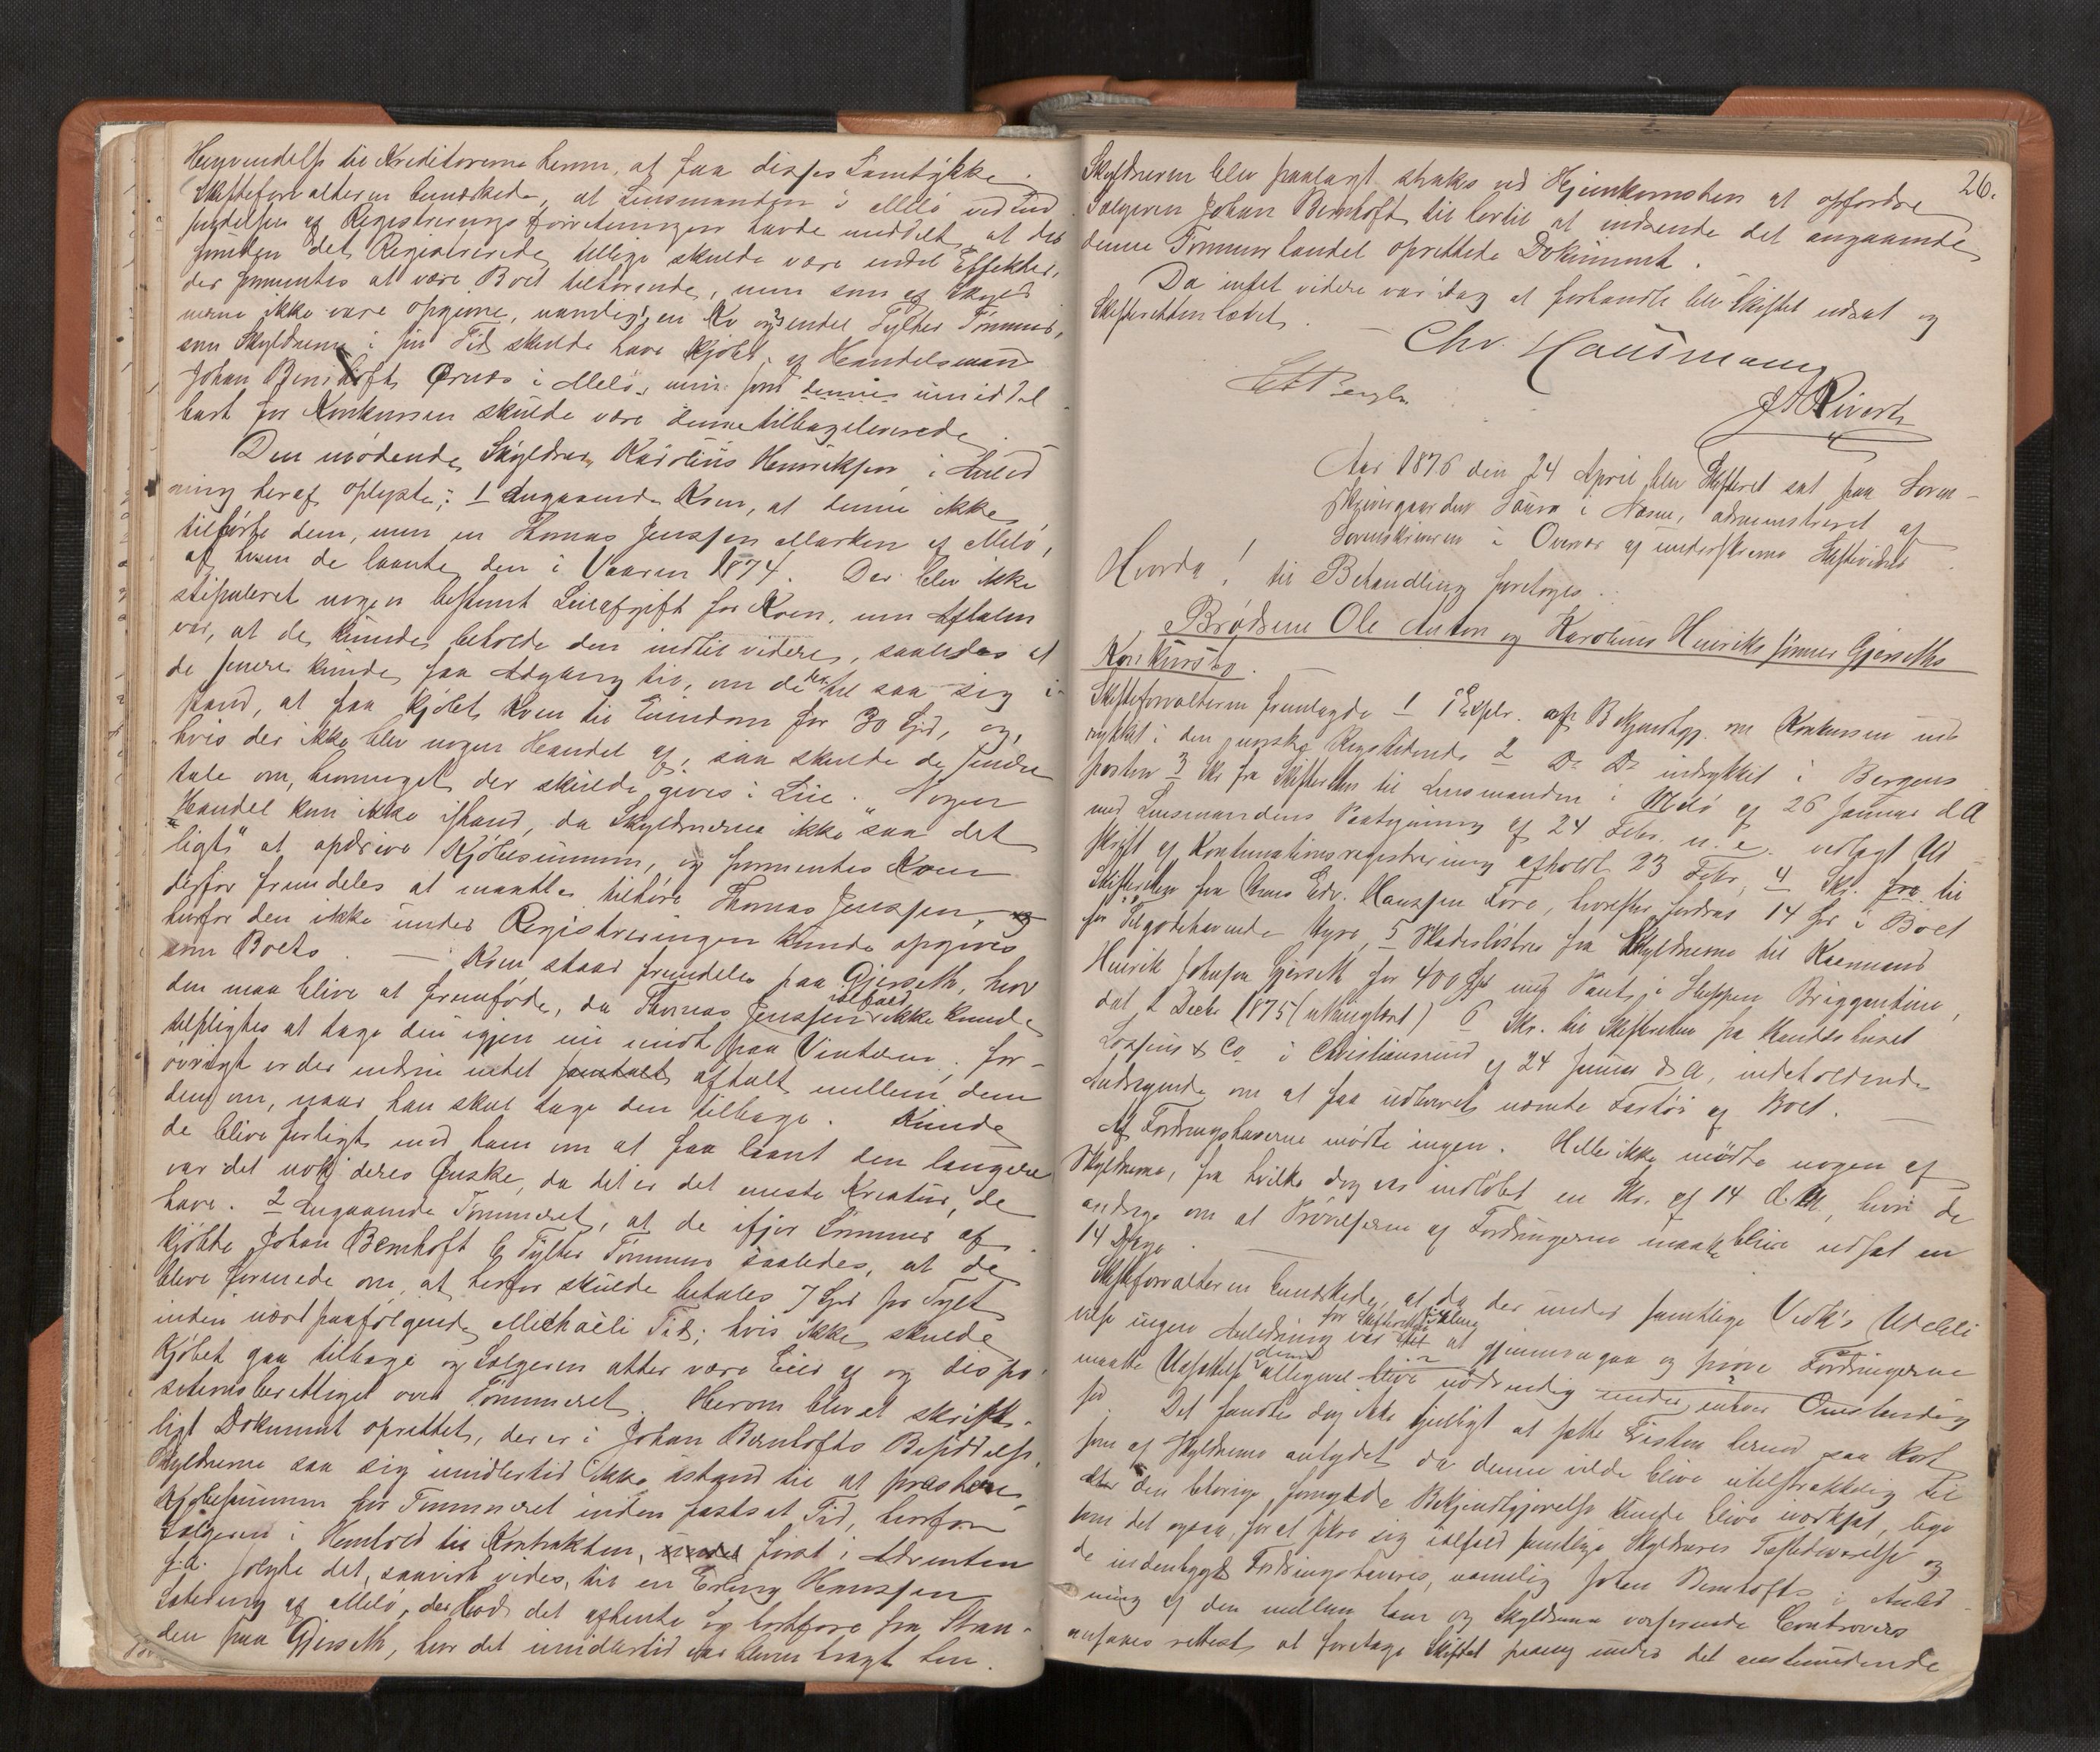 Henvendelse til Kreditorerne herom, at faa disses Samtykke.
Skifteforvalteren bemærkede, at Lensmanden i Melö ved Ind
sendelsen af Registreringsforretningen havde meddelt, at der
foruden det Registrerede tillige skulde være endel Effekter,
der formentes at være Boet tilhørende, men som af Skyld
nerne ikke vare opgivne, nemlig 1, en Ko og 2, endel Tylter Tømmer,
som Skyldnerne i sin Tid skulde have kjøbt af Handelsmand
Johan Bernhoft Ørnes i Melö, men som denne umiddel
bart før Konkursen skulde være denne tilbageleverede.
Den mødende Skyldner, Karolius Henriksen i Anled
ning heraf oplyste: 1 Angaaende Koen, at denne ikke
tilhørte dem, men en Thomas Jenssen Marken af Melö,
af hvem de laante den i Vaaren 1874. Der blev ikke
stipuleret nogen bestemt Leieafgift for Koen, men Aftalen
var, at de kunde beholde den indtil videre, saaledes at
de senere kunde faa Adgang til, om de dertil saa sig i
stand, at faa kjøbt Koen til Eiendom for 30 Spd, og,
hvis der ikke blev nogen Handel af, saa skulde de senere
tale om, hvormeget der skulde gives i Leie. Nogen
Handel kom ikke istand, da Skyldnerne ikke "saa det
ligt" at opdrive Kjøbesummen, og formentes Koen
derfor fremdeles at maatte tilhøre Thomas Jenssen,
hvorfor den ikke under Registreringen kunde opgives
som Boets. — Koen staar fremdeles paa Gjerseth, hvor
den maa blive at fremføde, da Thomas Jenssen ialfald ikke kunde
tilpligtes at tage den igjen nu midt paa Vinteren; for-
øvrigt er der endnu intet aftalt mellem dem
dem om, naar han skal tage den tilbage. Kunde
de blive forligt med ham om at faa laant den længere
var det nok deres Ønske, da det er det eneste Kreatur, de
have. 2 Angaaende Tømmeret, at de ifjor Sommer af
kjøbte Johan Bernhoft 6 Tylter Tømmer saaledes, at de
bleve forenede om, at herfor skulde betales 7 Spd pr Tylt
inden næstpaafølgende Michaeli Tid; hvis ikke skulde
Kjøbet gaa tilbage og Sælgeren atter være Eier af og dispo
sitionsberettiget over Tømmeret. Herom blev et skrift-
ligt Dokument oprettet, der er i Johan Bernhofts Besiddelse.
Skyldnerne saa sig imidlertid ikke istand til at præstere
Kjøbesummen for Tømmeret inden fastsat Tid, hvorfor
Sælgeren i Henhold til Kontrakten, først i Adventen
solgte det, saavidt vides, til en Erling Hanssen
af Melö, der lod det afhente og bortføre fra Stran-
den paa Gjerseth, hvor det imidlertid var bleven bragt hen.
26.
Skyldneren blev paalagt straks ved Hjemkomsten at opfordre
Sælgeren Johan Bernhoft til hertil at indsende det angaaende
denne Tømmerhandel oprettede Dokument.
Da intet videre var idag at forhandle blev Skiftet udsat og
Skifteretten hævet. —
Chr. Hausmann
Aar 1876 den 24 April blev Skifteret sat paa Soren-
skrivergaarden i Næsne, administreret af
Sorenskriveren i Overvær af underskrevne Skiftevidner
Hvorda! til Behandling foretoges:
Brødrene Ole Anton og Karolius Henriks sønner Gjerseths
Konkursbo. —
Skifteforvalteren fremlagde 1 Explr. af Bekjendtgj. om Konkursen ind
rykket i den norske Rigstidende 2 Do Do indrykket i Bergens
posten 3 Skr fra Skifteretten til Lensmanden i Melö af 26 Januar d A
med Lensmandens Paategning af 24 Febr. n. e. vedlagt Ud
skrift af Kontinuationsregistrering afholdt 23 Febr, 4 Skr. fra til
Skifteretten fra Hans Edv. Hanssen, hvorefter fordres 14 Spd i Boet
for Tilgodehavende Hyre, 5 Skadesløsbrev fra Skyldnerne til Kjøbmand
Henrik Johnsen Gjerseth for 400 Spd med Pant i Sluppen Briggantine,
dat 1 Decbr 1875 (uthinglæst) 6 Skr. til Skifteretten fra Handelshuset
& Co i Christiansund af 24 Januar d A, indeholdende
Andragende om at faa udleveret nævnte Fartøi af Boet.
Af Fordringshaverne mødte ingen. Heller ikke mødte nogen af
Skyldnerne, fra hvilke dog var indløbet en Skr. af 14 d. M., hvori de
andrage om at Prøvelserne af Fordringerne maatte blive udsat en
14 Dage. —
Skifteforvalteren bemærkede, at da der under samtlige Vedk's Udebli
velse ingen Anledning var for Skifteretten til at gjennemgaa og prøve Fordringerne
maatte Udsættelse allegivel blive nødvendig under enhver Omstændig
hed. Det fandtes dog ikke tjenligt at sætte Fristen herved saa kort
som af Skyldnerne antydet da denne vilde blive utilstrækkelig til
at den behørige, fornyede Bekjendtgjørelse kunde blive iværksat, lige
som det ogsaa, for at sikre sig ialfald samtlige Skyldneres Tilstedeværelse og
de indenbygds Fordringshaveres, nemlig Johan Bernhofts i Anled
ning af den mellem ham og Skyldnerne værserende Controvers
ansaaes rettest at foretage Skiftet paany under det anstundende